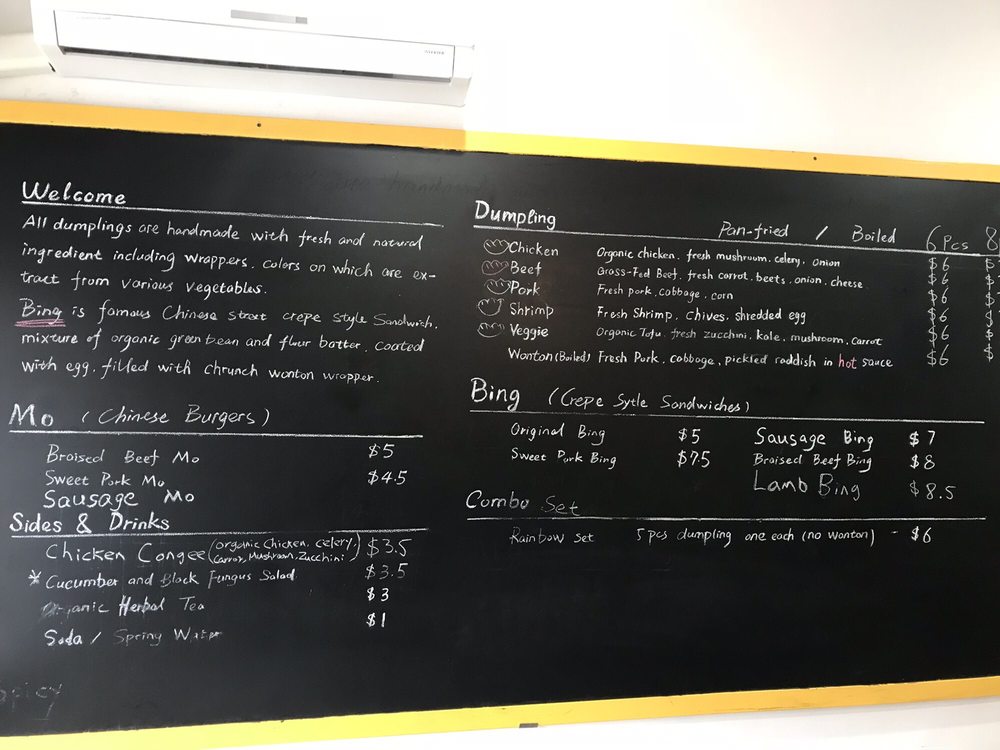 Welcome
All dumplings are handmade with fresh and natural
ingredient including wrappers. colors on which are ex-
tract from various vegetables.
Bing is famous Chinese street crepe style sandwich.
mixture of organic green bean and flour batter. coated
with egg. filled with chrunch wonton wrapper.
Mo (Chinese Burgers)
Braised Beef Mo $5
Sweet Pork Mo $4.5
Sausage Mo
Sides & Drinks
Chicken Congee (organic Chicken. celery, Carrot, Mushroom. Zucchini) $3.5
* Cucumber and Black Fungus Salad $3.5
Organic Herbal Tea $3
Soda / Spring Water $1
spicy
Dumpling Pan-fried / Boiled 6 Pcs 8
Chicken Organic chicken. fresh mushroom. celery. onion $6
Beef Grass-Fed Beef. fresh carrot. beets. onion. cheese $6
Pork Fresh pork. cabbage. corn $6
Shrimp Fresh Shrimp. chives. shredded egg $6
Veggie Organic Tofu. fresh zucchini. kale. mushroom. carrot $6
Wonton (Boiled) Fresh Pork. cabbage, pickled raddish in hot sauce $6
Bing (Crepe Sytle Sandwiches)
Original Bing $5 Sausage Bing $7
Sweet Pork Bing $7.5 Braised Beef Bing $8
Lamb Bing $8.5
Combo Set
Rainbow set 5 pcs dumpling one each (no wonton) - $6